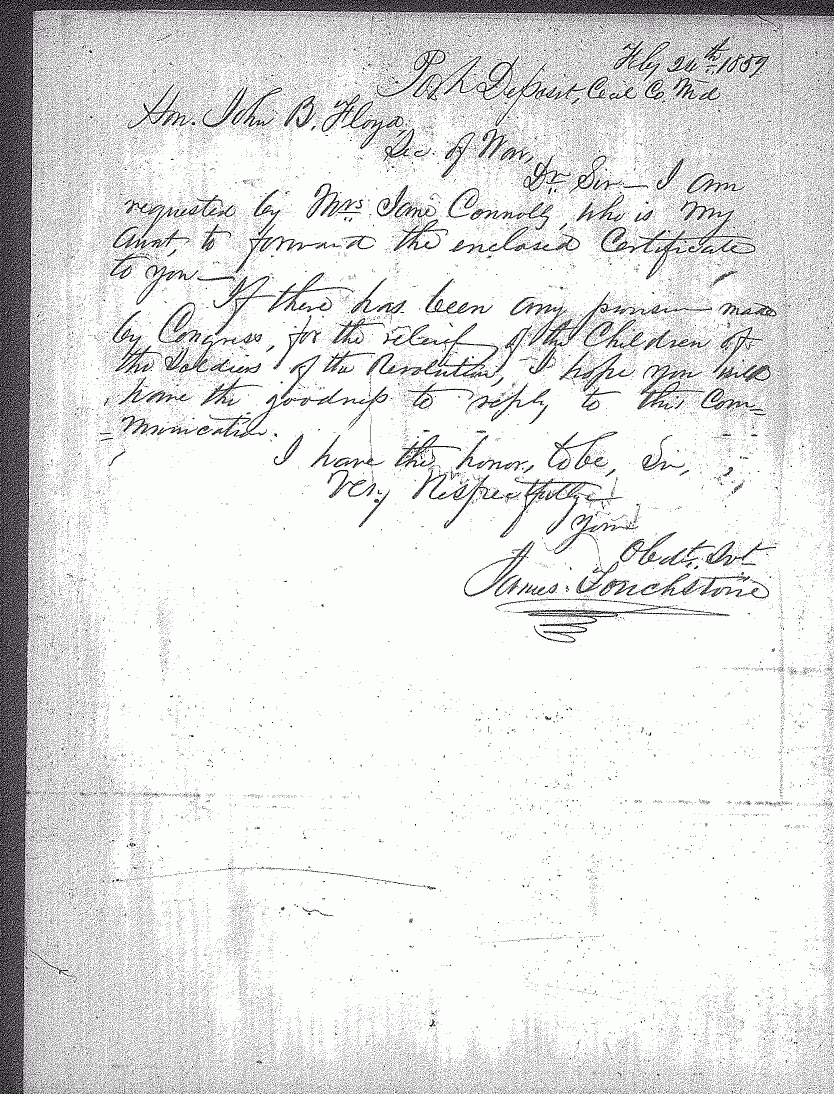 Feby 24th 1859
Port Deposit, Cecil Co. Md.
Hon. John B. Floyd,
Sec. of War,
Dr. Sir — I am
requested by Mrs. Jane Connolly, who is my
Aunt, to forward the enclosed Certificate
to you —
If there has been any provision made
by Congress, for the relief of the Children of
the Soldiers of the Revolution, I hope you will
have the goodness to reply to this Com=
=munication.
I have the honor, to be, Sir,
Very Respectfully
Your
Obdt. Svt
James Touchstone